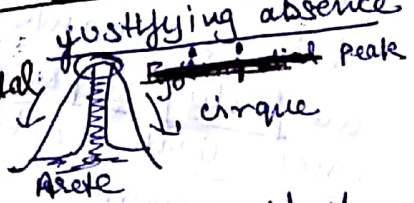 justifying absence
Peak
cirque
Arete